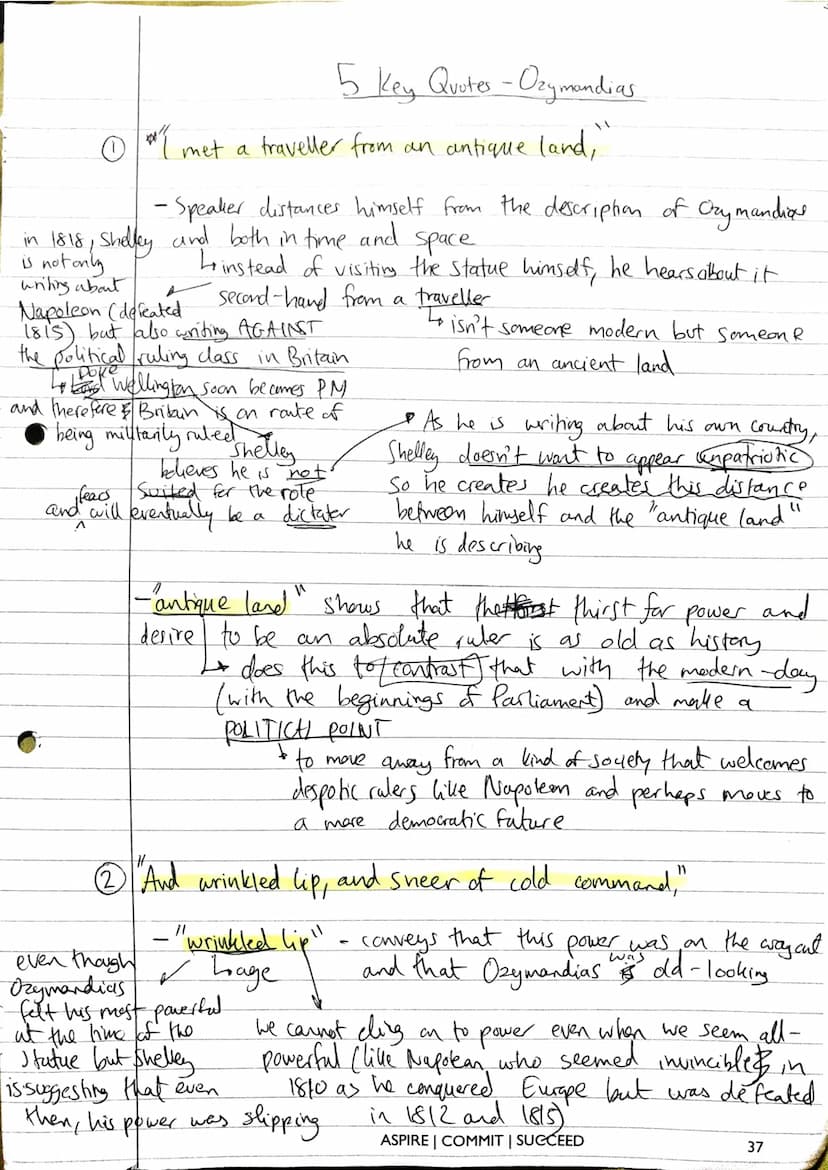 5 Key Quotes - Ozymandias
① *"I met a traveller from an antique land,"
- Speaker distances himself from the description of Ozymandias
and both in time and space
↳ instead of visiting the statue himself, he hears about it
second-hand from a traveller
↳ isn't someone modern but someone
from an ancient land
in 1818, Shelley
is not only
writing about
Napoleon (defeated
1815) but also writing AGAINST
the political ruling class in Britain
↳ Duke Wellington soon becomes PM
and therefore Britain is on route of
being militarily ruled
Shelley
believes he is not
suited for the role
and fears will eventually be a dictater
As he is writing about his own country,
Shelley doesn't want to appear unpatriotic
so he creates he creates this distance
between himself and the "antique land"
he is describing
- "antique land" shows that the thirst for power and
desire to be an absolute ruler is as old as history
↳ does this to contrast that with the modern-day
(with the beginnings of Parliament) and make a
POLITICAL POINT
↳ to move away from a kind of society that welcomes
despotic rulers like Napoleon and perhaps moves to
a more democratic future
② "And wrinkled lip, and sneer of cold command,"
- "wrinkled lip" - conveys that this power was on the way out
↳ age and that Ozymandias was old-looking
even though
Ozymandias
felt his most powerful
at the time of the
statue but Shelley
is suggesting that even
then, his power was slipping
We cannot cling on to power even when we seem all-
powerful (like Napolean who seemed invincible in
1810 as he conquered Europe but was defeated
in 1812 and 1815)
ASPIRE | COMMIT | SUCCEED
37